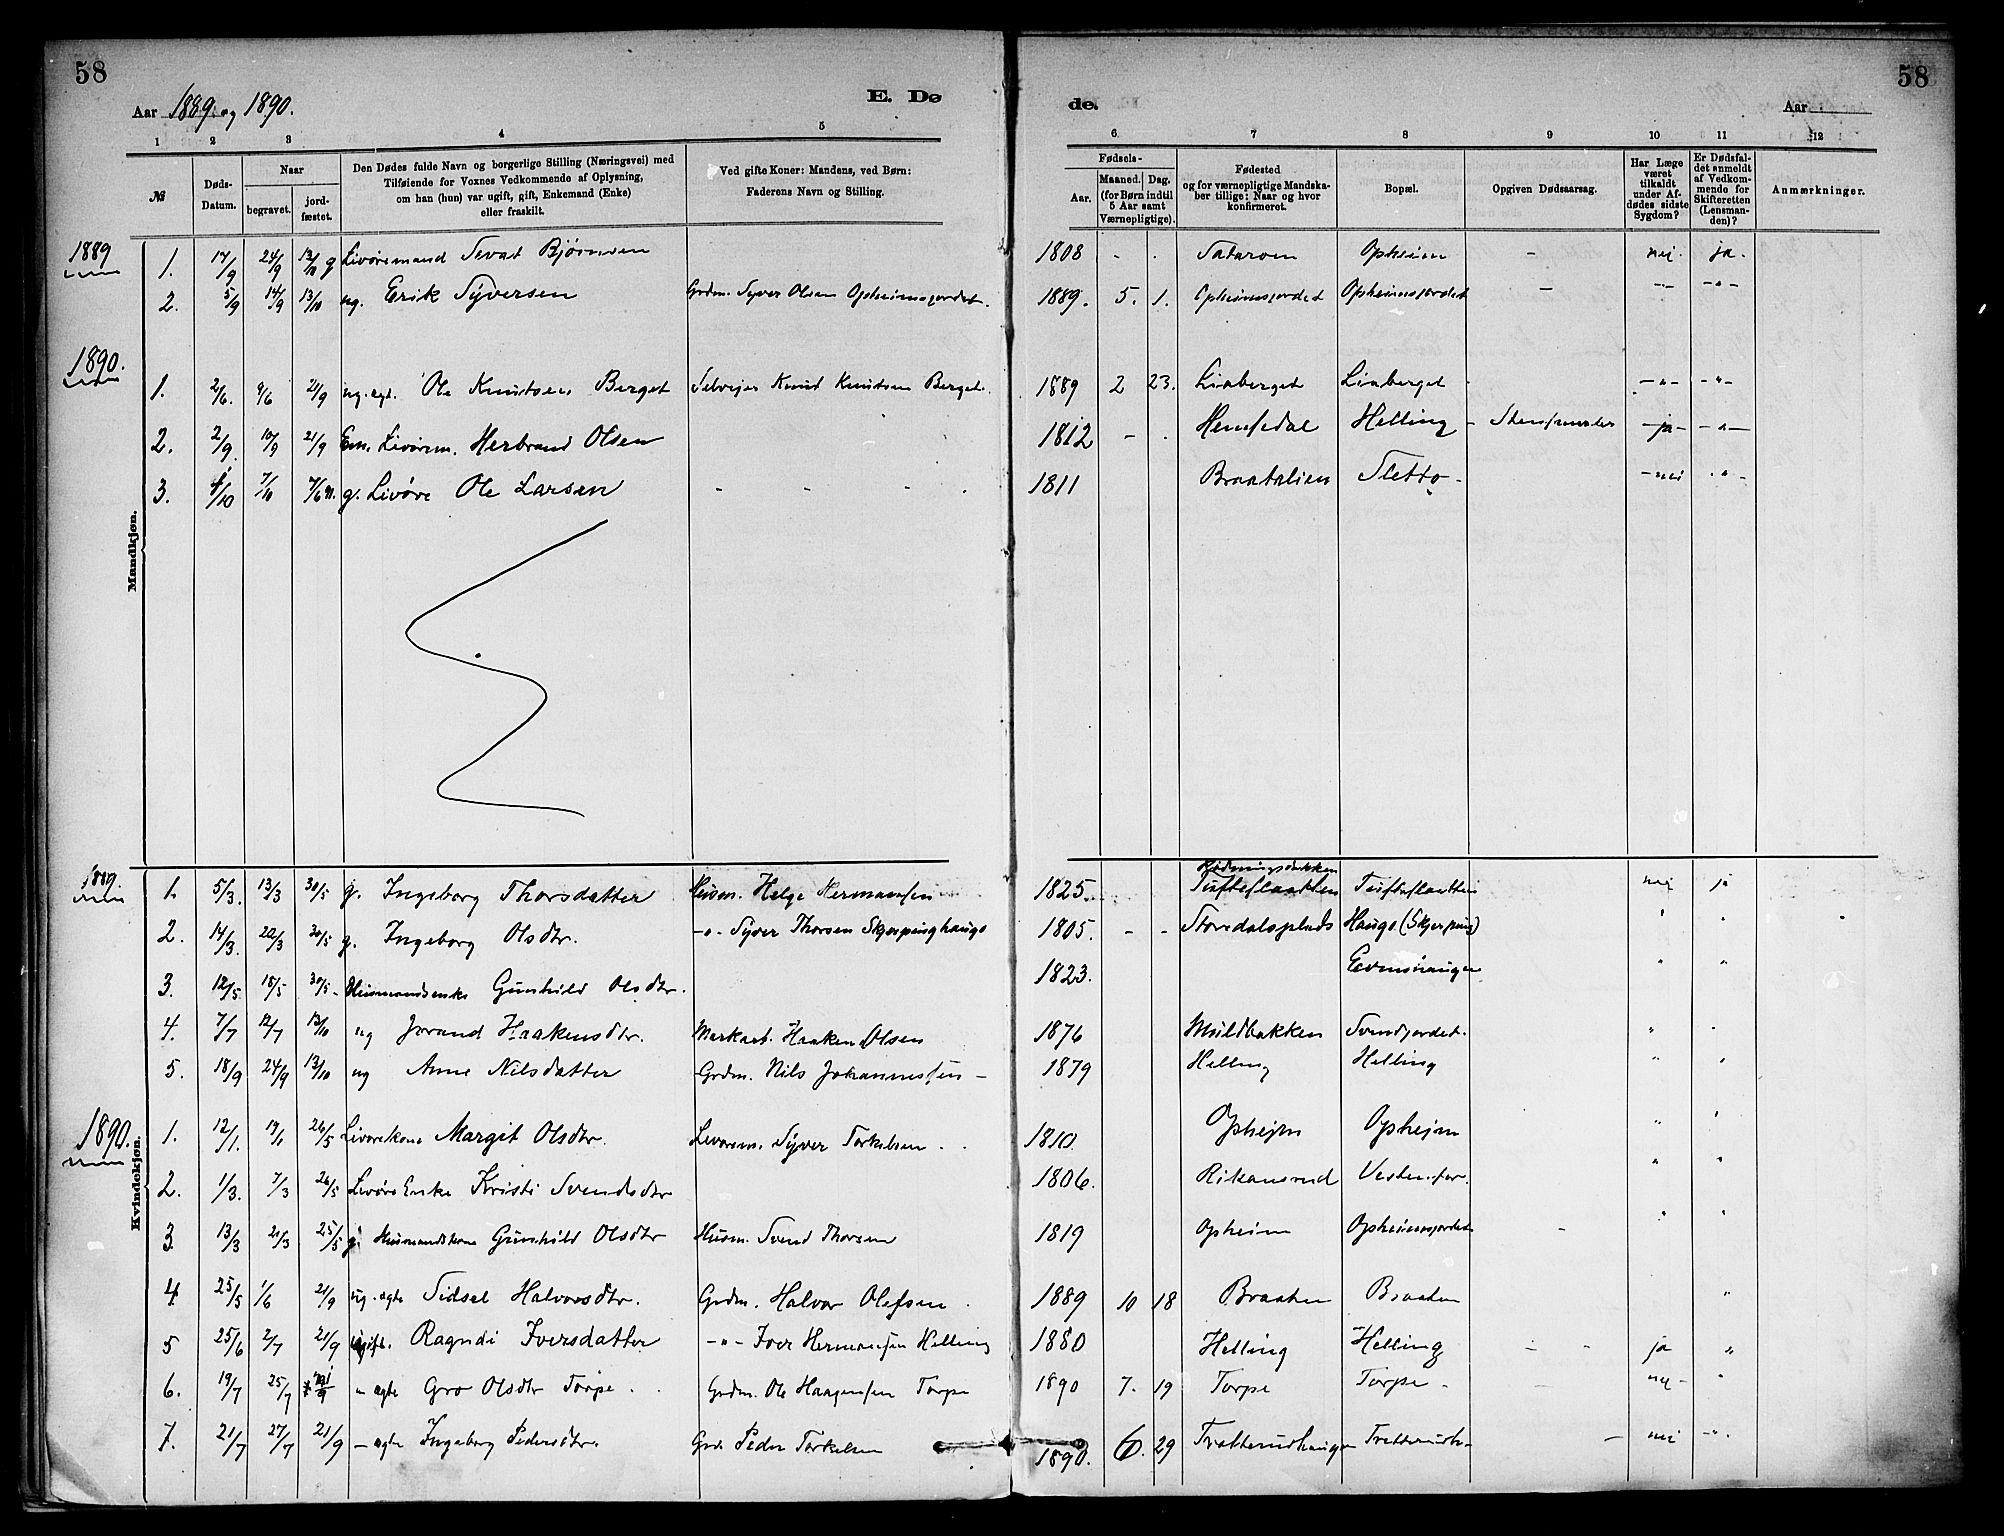 58
58
Aar 1889 og 1890.
E. Dø
de.
Aar
1 2 3 4 5 6. 7 8 9 10 11 12
№
Døds-Datum.
Naar
begravet.
jord-fæstet.
Den Dødes fulde Navn og borgerlige Stilling (Næringsvei) med
Tilføiende for Voxnes Vedkommende af Oplysning,
om han (hun) var ugift, gift, Enkemand (Enke)
eller fraskilt.
Ved gifte Koner: Mandens, ved Børn:
Faderens Navn og Stilling.
Fødsels-
Aar.
Maaned. Dag.
(for Børn indtil
5 Aar samt
Værnepligtige).
Fødested
og for værnepligtige Mandska-
ber tillige: Naar og hvor
konfirmeret.
Bopæl.
Opgiven Dødsaarsag.
Har Læge
været
tilkaldt
under Af-
dødes sidste
Sygdom?
Er Dødsfal-
det anmeldt
af Vedkom-
mende for
Skifteretten
(Lensman-
den)?
Anmærkninger.
Mandkjøn.
1889
1. 17/9 24/9 13/10 g Livøremand Sevat Bjørnsen 1808 - . Opheim - nei. ja.
2. 5/9 14/9 13/10 ug. Erik Syversen Grdm. Syver Olsen Opheimsjordet. 1889. 5. 1. Opheimsjordet Opheimsjordet - -"- -"-
1890.
1. 2/6. 9/6 21/9 ug. ægt. Ole Knudsen Berget Selveier Knud Knudsen Berget. 1889 2 23. Liaberget Liaberget -"- -"-
2. 2/9. 10/9 21/9 Em. Livørem. Herbrand Olsen 1812 - . Hemsedal Helling - -ja- -"-
3. 4/10 7/10 7/6 91. g. Livøre Ole Larsen - - - . 1811 Braatalien Sletto - -nei -"-
Kvindekjøn.
1889.
1. 5/3. 13/3 30/5 g. Ingeborg Thorsdatter Husm. Helge Hermansen 1825. Tufteslaatten Tufteslaatten nei ja
2. 14/3. 22/3 30/5 g. Ingeborg Olsdtr. -"- Syver Thorsen Skjerpinghaugo 1805. - - Storedalsplads Haugo (Skjerping) " "
3. 12/5. 18/5 30/5 - Husmandsenke Gunhild Olsdtr. 1823. " "
4. 7/7 12/7 13/10 ug Jorand Haakensdtr. Haaken Olsen 1876 Muldbakken Svendjordet. " "
5. 18/9 24/9 13/10 ug Anne Nilsdatter Grdm. Nils Johannessen - 1879 Helling Helling " "
1890.
1. 12/1. 19/1 26/5 Livørekone Margit Olsdtr. Livørem. Syver Torkelsen . . 1810. Opheim Opheim " "
2. 1/3. 7/3 26/5 Livøre Enke Kristi Svendsdtr 1806. Rikansrud " "
3. 13/3 21/3 25/5 g. Husmandskone Gunhild Olsdtr Husm. Svend Thorsen 1819 Opheim Opheimsjordet - " "
4. 25/5 1/6 21/9 ug. ægte Sidsel Halvorsdtr. Grdm. Halvor Olefsen . 1889 10 18 Braaten Braaten "
5 25/6 2/7 21/9 ugift. Ragndi Iversdatter -"- Iver Hermansen Helling 1880 Helling Helling - - ja "
6. 19/7 25/7 21/9 - ægte Gro Olsdtr Torpe . . Grdm. Ole Haagensen Torpe 1890 7. 19 Torpe Torpe - nei - "
7. 21/7 27/7 21/9 - ægte Ingeborg Pedersdtr. Grd. Peder Torkelsen 1890. 6. 29 Trætterudhaugen - nei -"-